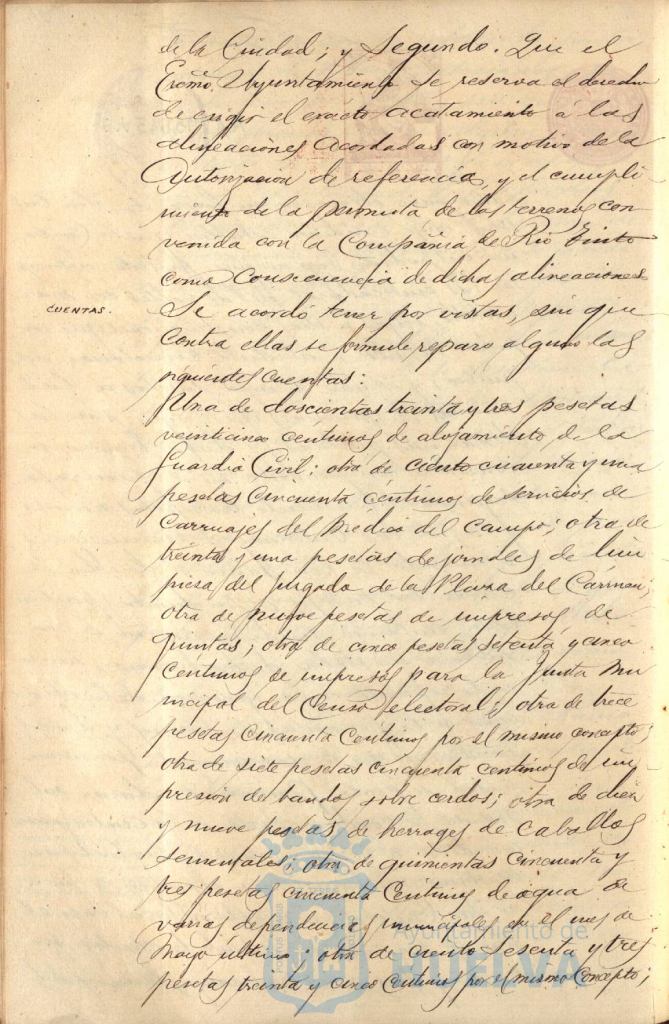 de la Ciudad; y Segundo. Que el
Excmo. Ayuntamiento se reserva el derecho
de exigir el exacto acatamiento á las
alineaciones acordadas con motivo de la
autorización de referencia, y el cumpli
miento de la permuta de los terrenos con
venida con la Compañia de Rio Tinto
como consecuencia de dichas alineaciones
CUENTAS.
Se acordó tener por vistas, sin que
contra ellas se formule reparo alguno las
siguientes cuentas:
Una de doscientas treinta y tres pesetas
veinticinco céntimos de alojamiento de la
Guardia Civil; otra de ciento cuarenta y una
pesetas cincuenta céntimos de servicios de
carruajes del Médico del Campo; otra de
treinta y una pesetas de jornales de lim
pieza del Juzgado de la Plaza del Carmen;
otra de nueve pesetas de impresos de
quintas; otra de cinco pesetas setenta y cinco
céntimos de impresos para la Junta Mu
nicipal del Censo electoral; otra de trece
pesetas cincuenta céntimos por el mismo concepto;
otra de siete pesetas cincuenta céntimos de im
presión de bandos sobre cerdos; otra de diez
y nueve pesetas de herrages de caballos
sementales; otra de quinientas cincuenta y
tres pesetas cincuenta céntimos de agua de
varias dependencias municipales en el mes de
Mayo último; otra de ciento sesenta y tres
pesetas treinta y cinco céntimos por el mismo concepto;
Ayuntamiento de
HUELVA